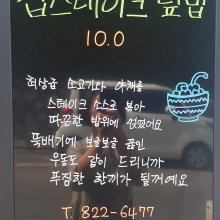 찹스테이크 덮밥
10.0
최상급 소고기와 야채를
스테이크 소스로 볶아
따끈한 밥위에 얹었어요
뚝배기에 보글보글 끓인
우동도 같이 드리니까
푸짐한 한끼가 될꺼예요
T. 822-6477